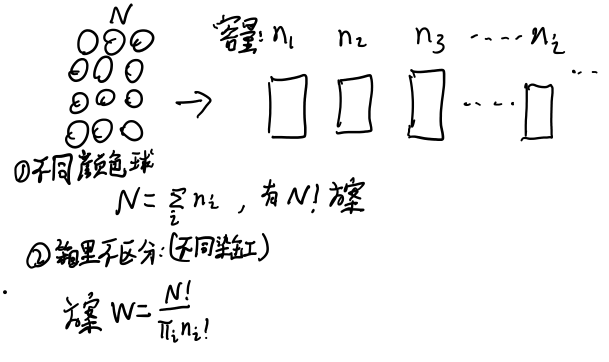 N
容量: n₁ n₂ n₃ ····· nᵢ ···
①不同颜色球
N = Σᵢ nᵢ , 有 N! 方案
②箱里不区分:(不同染缸)
方案 W = N! / πᵢ nᵢ!